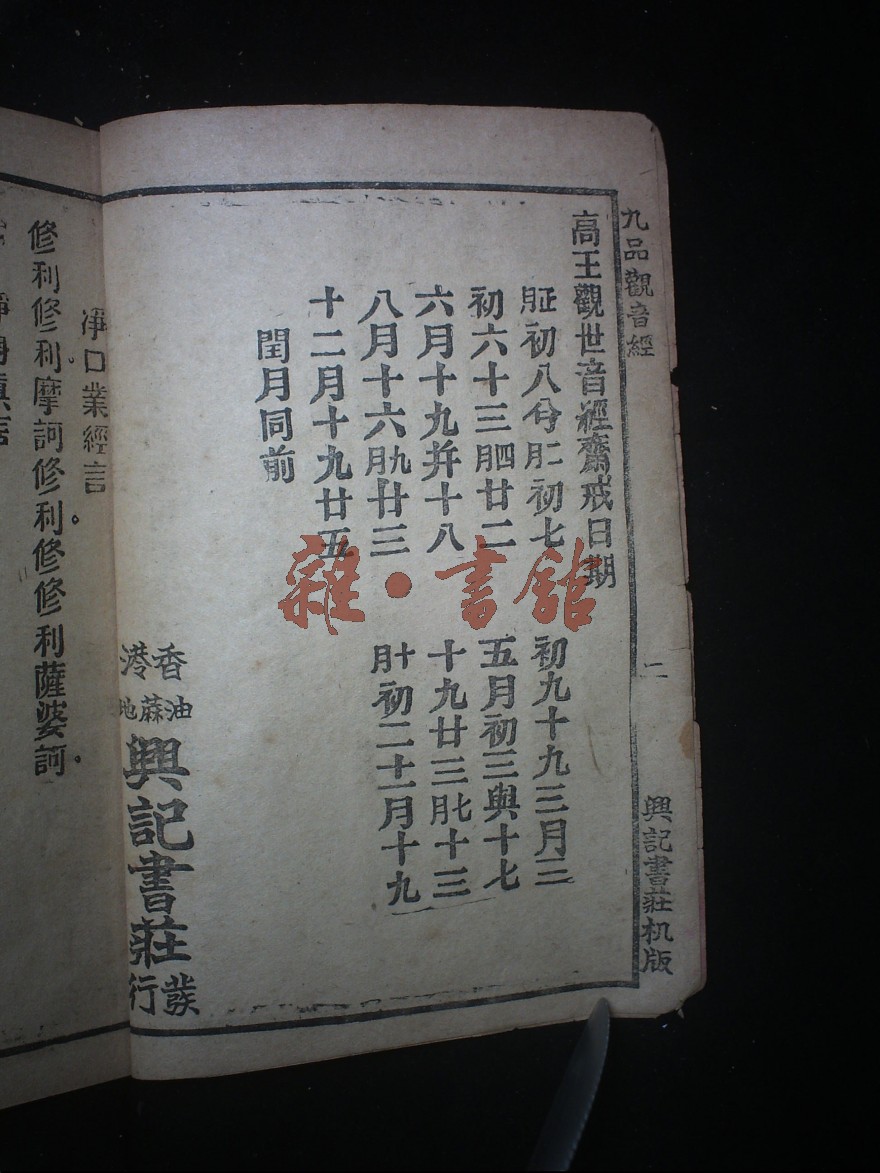 九品觀音經
二
興記書莊机版
高王觀世音經齋戒日期
正月初八兮二月初七 初九十九三月三
初六十三四月廿二 五月初三與十七
六月十九并十八 十九廿三七月十三
八月十六九月廿三 十月初二十一月十九
十二月十九廿五
閏月同前
香港
油蔴地
興記書莊發行
淨口業經言
修利修利。摩訶修利。修修利薩婆訶。
雜·書館